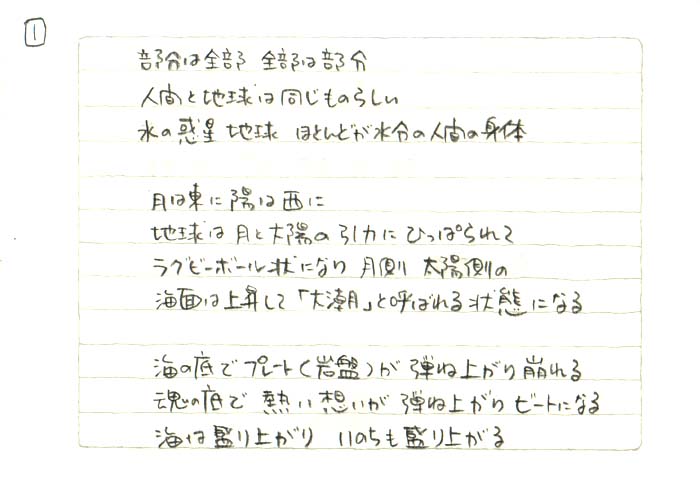 1
部分は全部 全部は部分
人間と地球は同じものらしい
水の惑星 地球 ほとんどが水分の人間の身体
月は東に 陽は西に
地球は月と太陽の引力に ひっぱられて
ラグビーボール状になり 月側 太陽側の
海面は上昇して「大潮」と呼ばれる状態になる
海の底でプレート(岩盤)が 弾ね上がり崩れる
魂の底で 熱い想いが 弾ね上がり ビートになる
海は盛り上がり いのちも盛り上がる